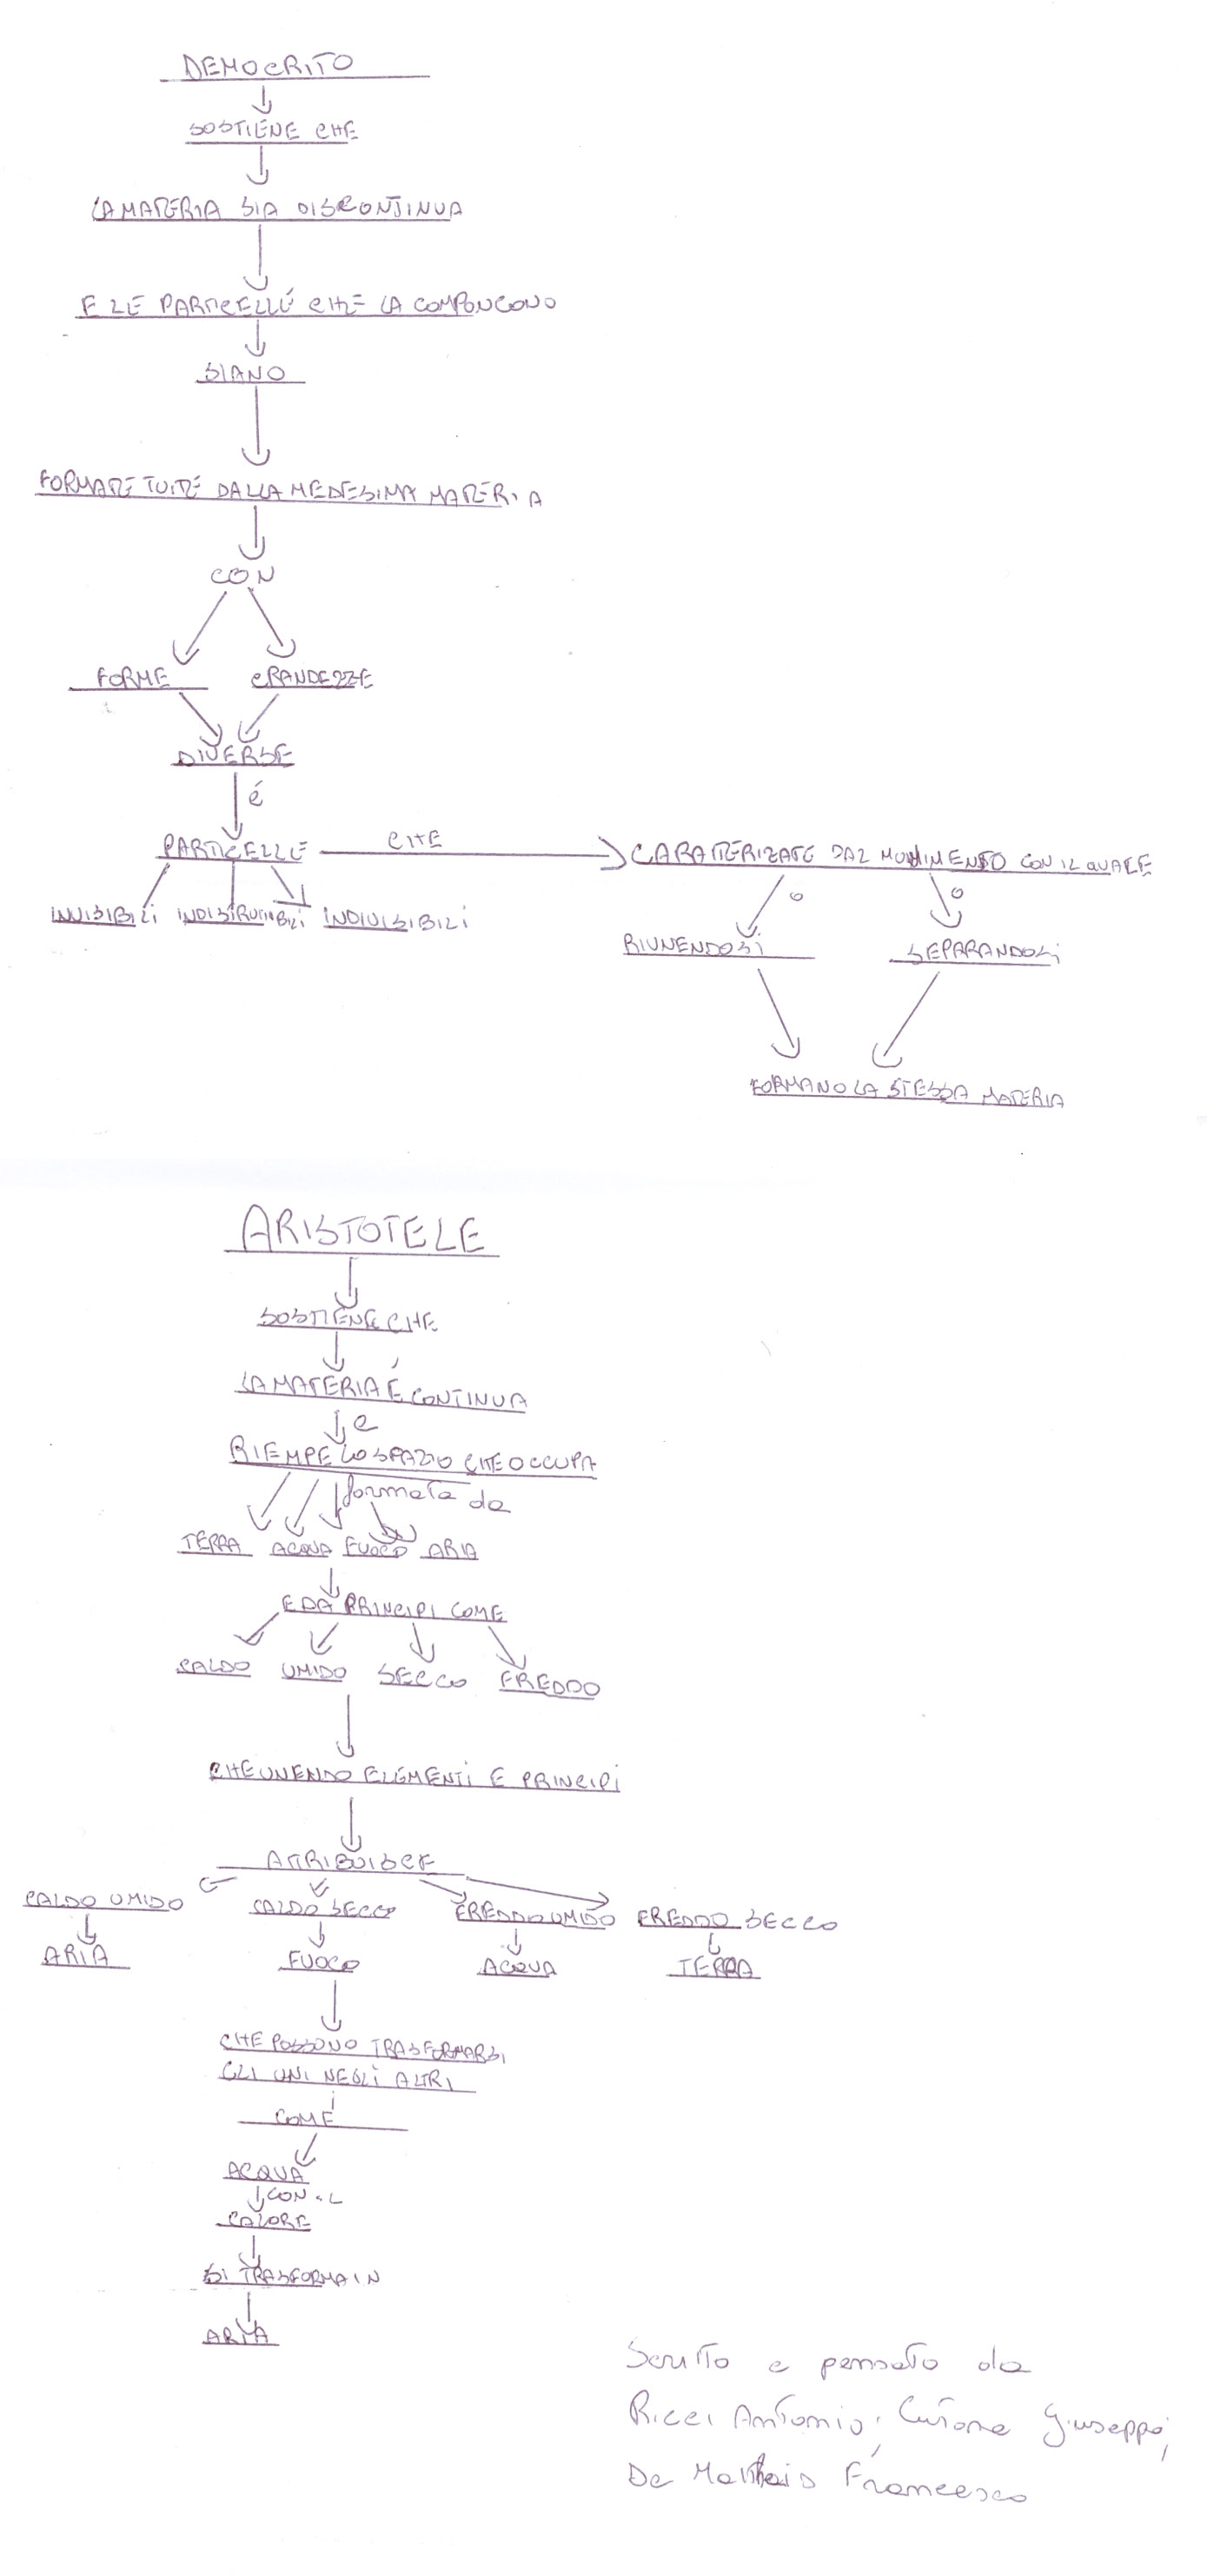 DEMOCRITO
SOSTIENE CHE
LA MATERIA SIA DISCONTINUA
E LE PARTICELLE CHE LA COMPONGONO
SIANO
FORMATE TUTTE DALLA MEDESIMA MATERIA
CON
FORME GRANDEZZE
DIVERSE
é
PARTICELLE CHE CARATTERIZATE DAL MOVIMENTO CON IL QUALE
INVISIBILI INDISTRUTTIBILI INDIVISIBILI
o o
RIUNENDOSI SEPARANDOSI
FORMANO LA STESSA MATERIA
ARISTOTELE
SOSTIENE CHE
LA MATERIA É CONTINUA
e
RIEMPE LO SPAZIO CHE OCCUPA
formata da
TERRA ACQUA FUOCO ARIA
E DA PRINCIPI COME
CALDO UMIDO SECCO FREDDO
CHE UNENDO ELEMENTI E PRINCIPI
ATTRIBUISCE
CALDO UMIDO CALDO SECCO FREDDO UMIDO FREDDO SECCO
ARIA FUOCO ACQUA TERRA
CHE POSSONO TRASFORMARSI
GLI UNI NEGLI ALTRI
COME
ACQUA
CON IL
CALORE
SI TRASFORMA IN
ARIA
Scritto e pensato da
Ricci Antonio, Giuseppe,
De Francesco